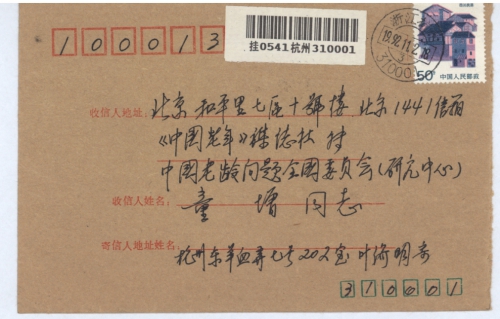 100013
挂0541杭州310001
浙江
1992.11.2.18
3
310001
50分
中国人民邮政
收信人地址:北京和平里七区十號楼 北京1441信箱
《中国老年》雜誌社 转
中国老龄问题全国委员会(研究中心)
收信人姓名:童 墉 同志
寄信人地址姓名:杭州东羊血弄七号202室 叶浛明寄
310001